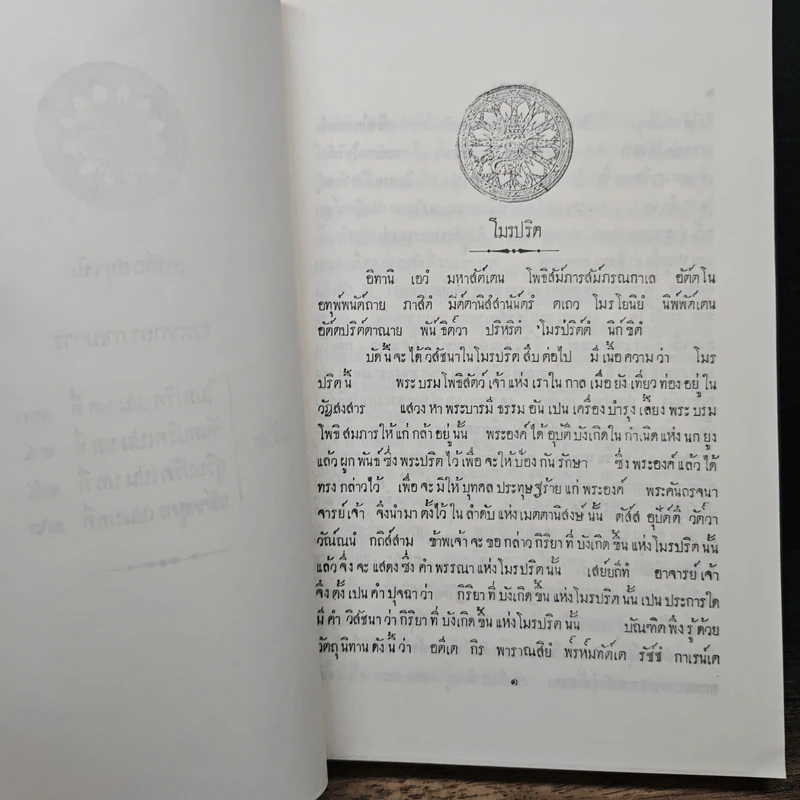 โมรปริต
อิทานิ เอวํ มหาสัตเตน โพธิสัมภารสัมภรณกาเล อัตตโน
อทุพ์พนัต์ถาย ภาสิตํ มีตตานิสํสานันตรํ ตเถว โมรโยนิยํ นิพ์พัต์เตน
อัต์ตปริต์ตาณาย พัน์ธิต์วา ปริหริตํ โมรปริต์ตํ นิก์ขิตํ
บัดนี้จะได้วิสัชนาในโมรปริตสืบต่อไป มีเนื้อความว่า โมร
ปริตนี้ พระบรมโพธิสัตว์เจ้าแห่งเราในกาลเมื่อยังเที่ยวท่องอยู่ใน
วัฏสงสาร แสวงหาพระบารมีธรรมอันเปนเครื่องบำรุงเลี้ยงพระบรม
โพธิสมภารให้แก่กล้าอยู่นั้น พระองค์ได้อุบัติบังเกิดในกำเนิดแห่งนกยูง
แล้วผูกพันธ์ซึ่งพระปริตไว้เพื่อจะให้ป้องกันรักษา ซึ่งพระองค์แล้วได้
ทรงกล่าวไว้ เพื่อจะมิให้บุคคลประทุษฐ์ร้ายแก่พระองค์ พระคันถรจนา
จารย์เจ้า จึงนำมาตั้งไว้ในลำดับแห่งเมตตานิสงษ์นั้น ตัส์ส อุป์ัต์ติ วัต์วา
วัณ์ณนํ กถิส์สาม ข้าพเจ้าจะขอกล่าวกิริยาที่บังเกิดขึ้นแห่งโมรปริตนั้น
แล้วจึ่งจะแสดงซึ่งคำพรรณาแห่งโมรปริตนั้น เสย์ยถีทํ อาจารย์เจ้า
จึงตั้งเปนคำปุจฉาว่า กิริยาที่บังเกิดขึ้นแห่งโมรปริตนั้นเปนประการใด
มีคำวิสัชนาว่ากิริยาที่บังเกิดขึ้นแห่งโมรปริตนั้น บัณฑิตพึงรู้ด้วย
วัตถุนิทานดังนี้ว่า อตีเต กิร พาราณสิยํ พ์รห์มทัต์เต รัช์ชํ กาเรน์เต
๑